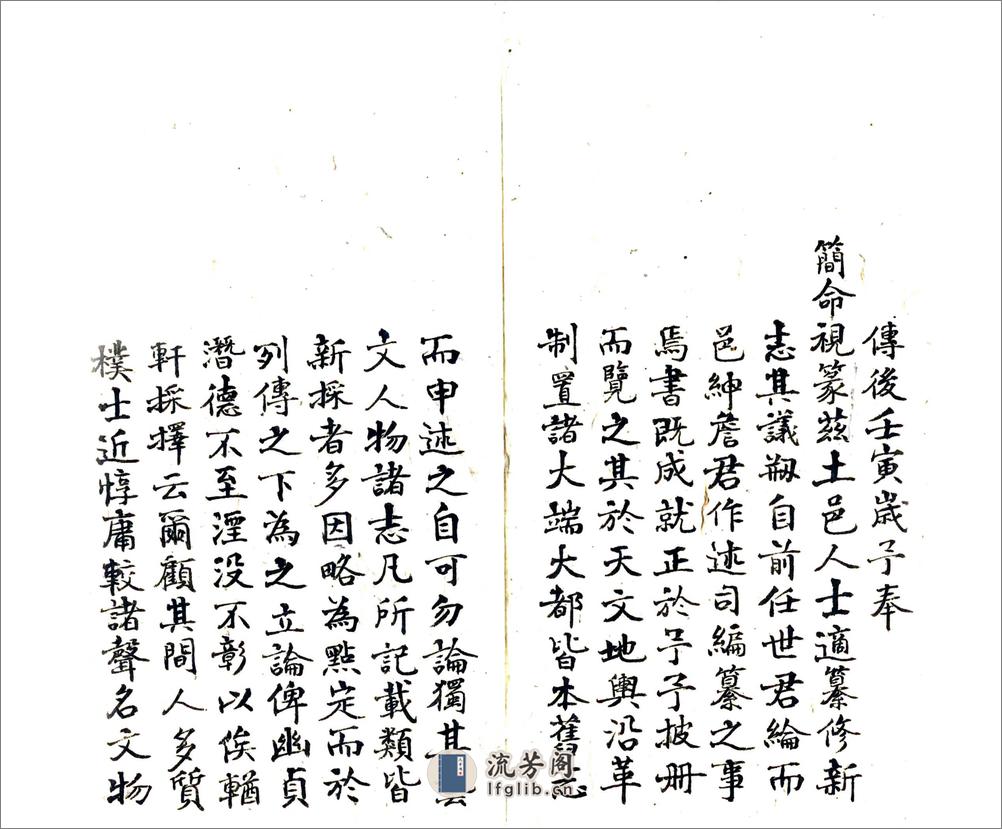 傳後壬寅歲予奉
簡命視篆茲土邑人士適纂修新
志其議剏自前任世君綸而
邑紳詹君作述司編纂之事
焉書既成就正於予予披冊
而覽之其於天文地輿沿革
制置諸大端大都皆本舊志
而申述之自可勿論獨其
文人物諸志凡所記載類皆
新採者多因略為點定而於
列傳之下為之立論俾幽貞
潛德不至湮没不彰以俟輶
軒採擇云爾顧其間人多質
樸士近惇庸較諸聲名文物
流芳阁
lfglib.cn